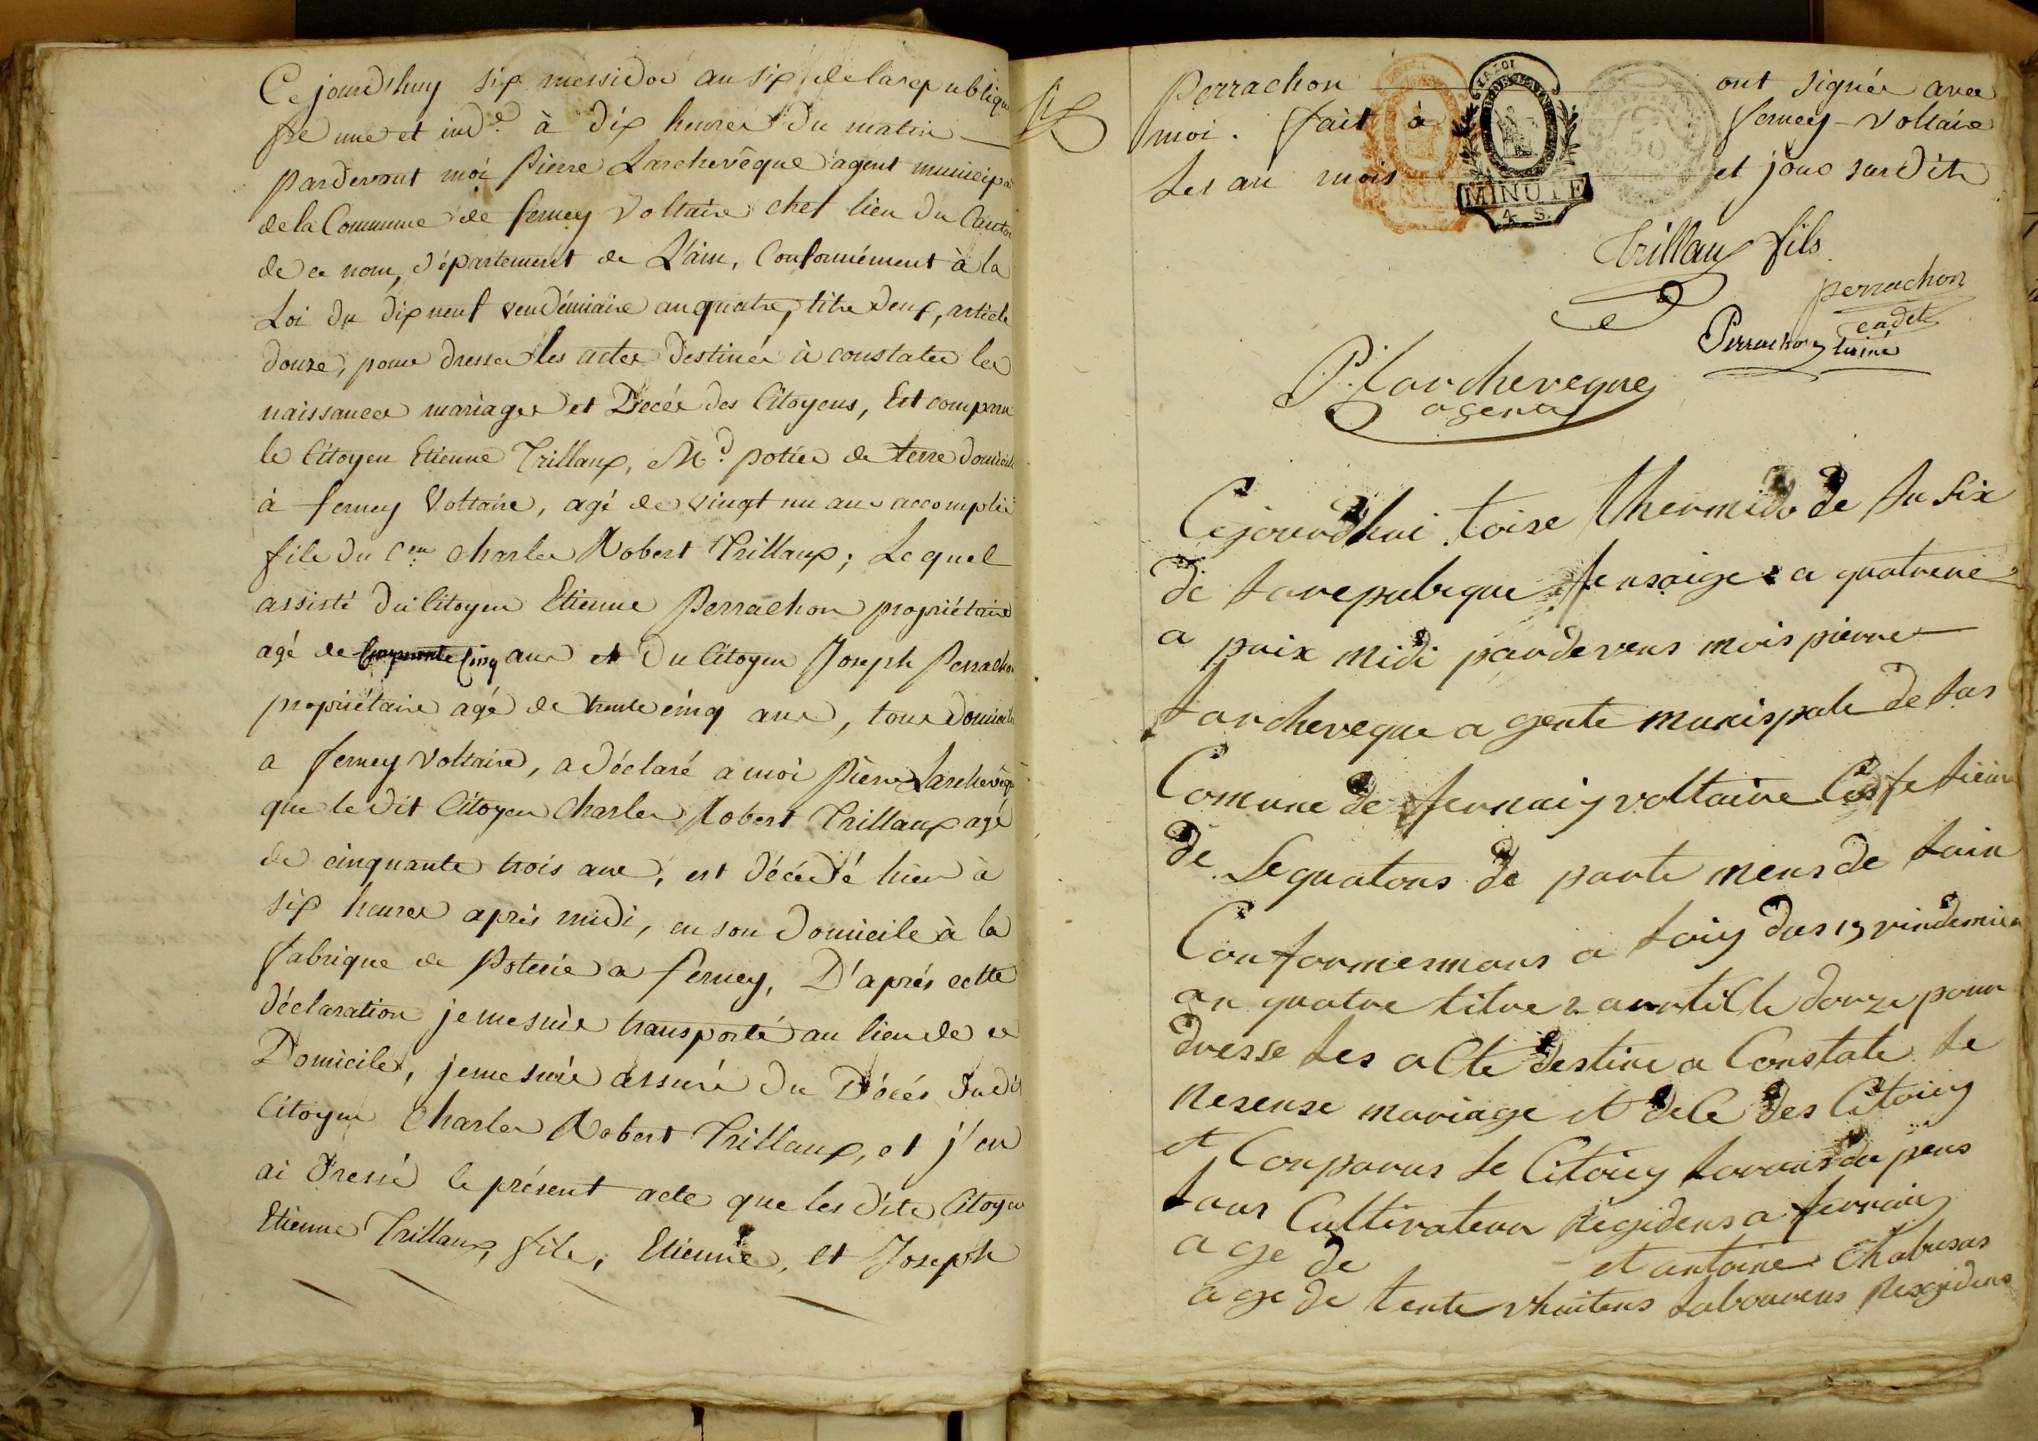 Ce jourd'huy six messidor an six de la republique
fse une et indle à dix heures du matin
pardevant moi Pierre Larchevêque agent municipal
de la Commune de ferney Voltaire chef lieu du Canton
de ce nom, département de L'ain, Conformément à la
Loi du dix neuf vendémiaire an quatre, titre deux, article
douze, pour dresser les actes destinés à constater les
naissances mariages et Décès des Citoyens, Est comparu
le Citoyen Etienne Trillaux, Md potier de terre domicilié
à ferney Voltaire, agé de vingt un ans accomplis
fils du Cen Charles Robert Trillaux; Lequel
assisté du Citoyen Etienne Perrachon propriétaire
agé de cinq ans et du Citoyen Joseph Perrachon
propriétaire agé de trente cinq ans, tous domiciliés
a ferney Voltaire, a déclaré a moi Pierre Larchevêque
que le dit Citoyen Charles Robert Trillaux agé
de cinquante trois ans, est décédé hier à
six heures après midi, en son domicile à la
fabrique de Poterie a ferney, D'après cette
déclaration je me suis transporté au lieu de ce
Domicile, je me suis assuré du Décés dudit
Citoyen Charles Robert Trillaux, et j'en
ai Dressé le présent acte que les dits Citoyens
Etienne Trillaux, fils, Etienne, et Joseph
Perrachon ont signés avec
moi. fait à ferney-Voltaire
Les an mois et jour susdits
MINUTE
4 S.
50
Trillaux fils
perrachon
cadet
Perrachon lainé
P. Larcheveque
agent
Cejourdhui toise thermido de Ju six
de Larepubique fensaige a quatreue
a paix midi pardevens mois pierre
Larcheveque agente munispale de Las
Comune de fernaiy voltaire Cefe Lieiu
de Lequatons de parte mens de Lain
Conformesmans a Loiy das 19 vindemiea
an quatre titre 2 artille douze pour
dresse Les alte destine a Constate Le
nesense mariage et dece des Citoiey
et Conparus Le Citoiey
Cultivateur Regidens a fernaiy
age de et antoine Chabusas
age de tente vhuitens Labourens Rexgidens